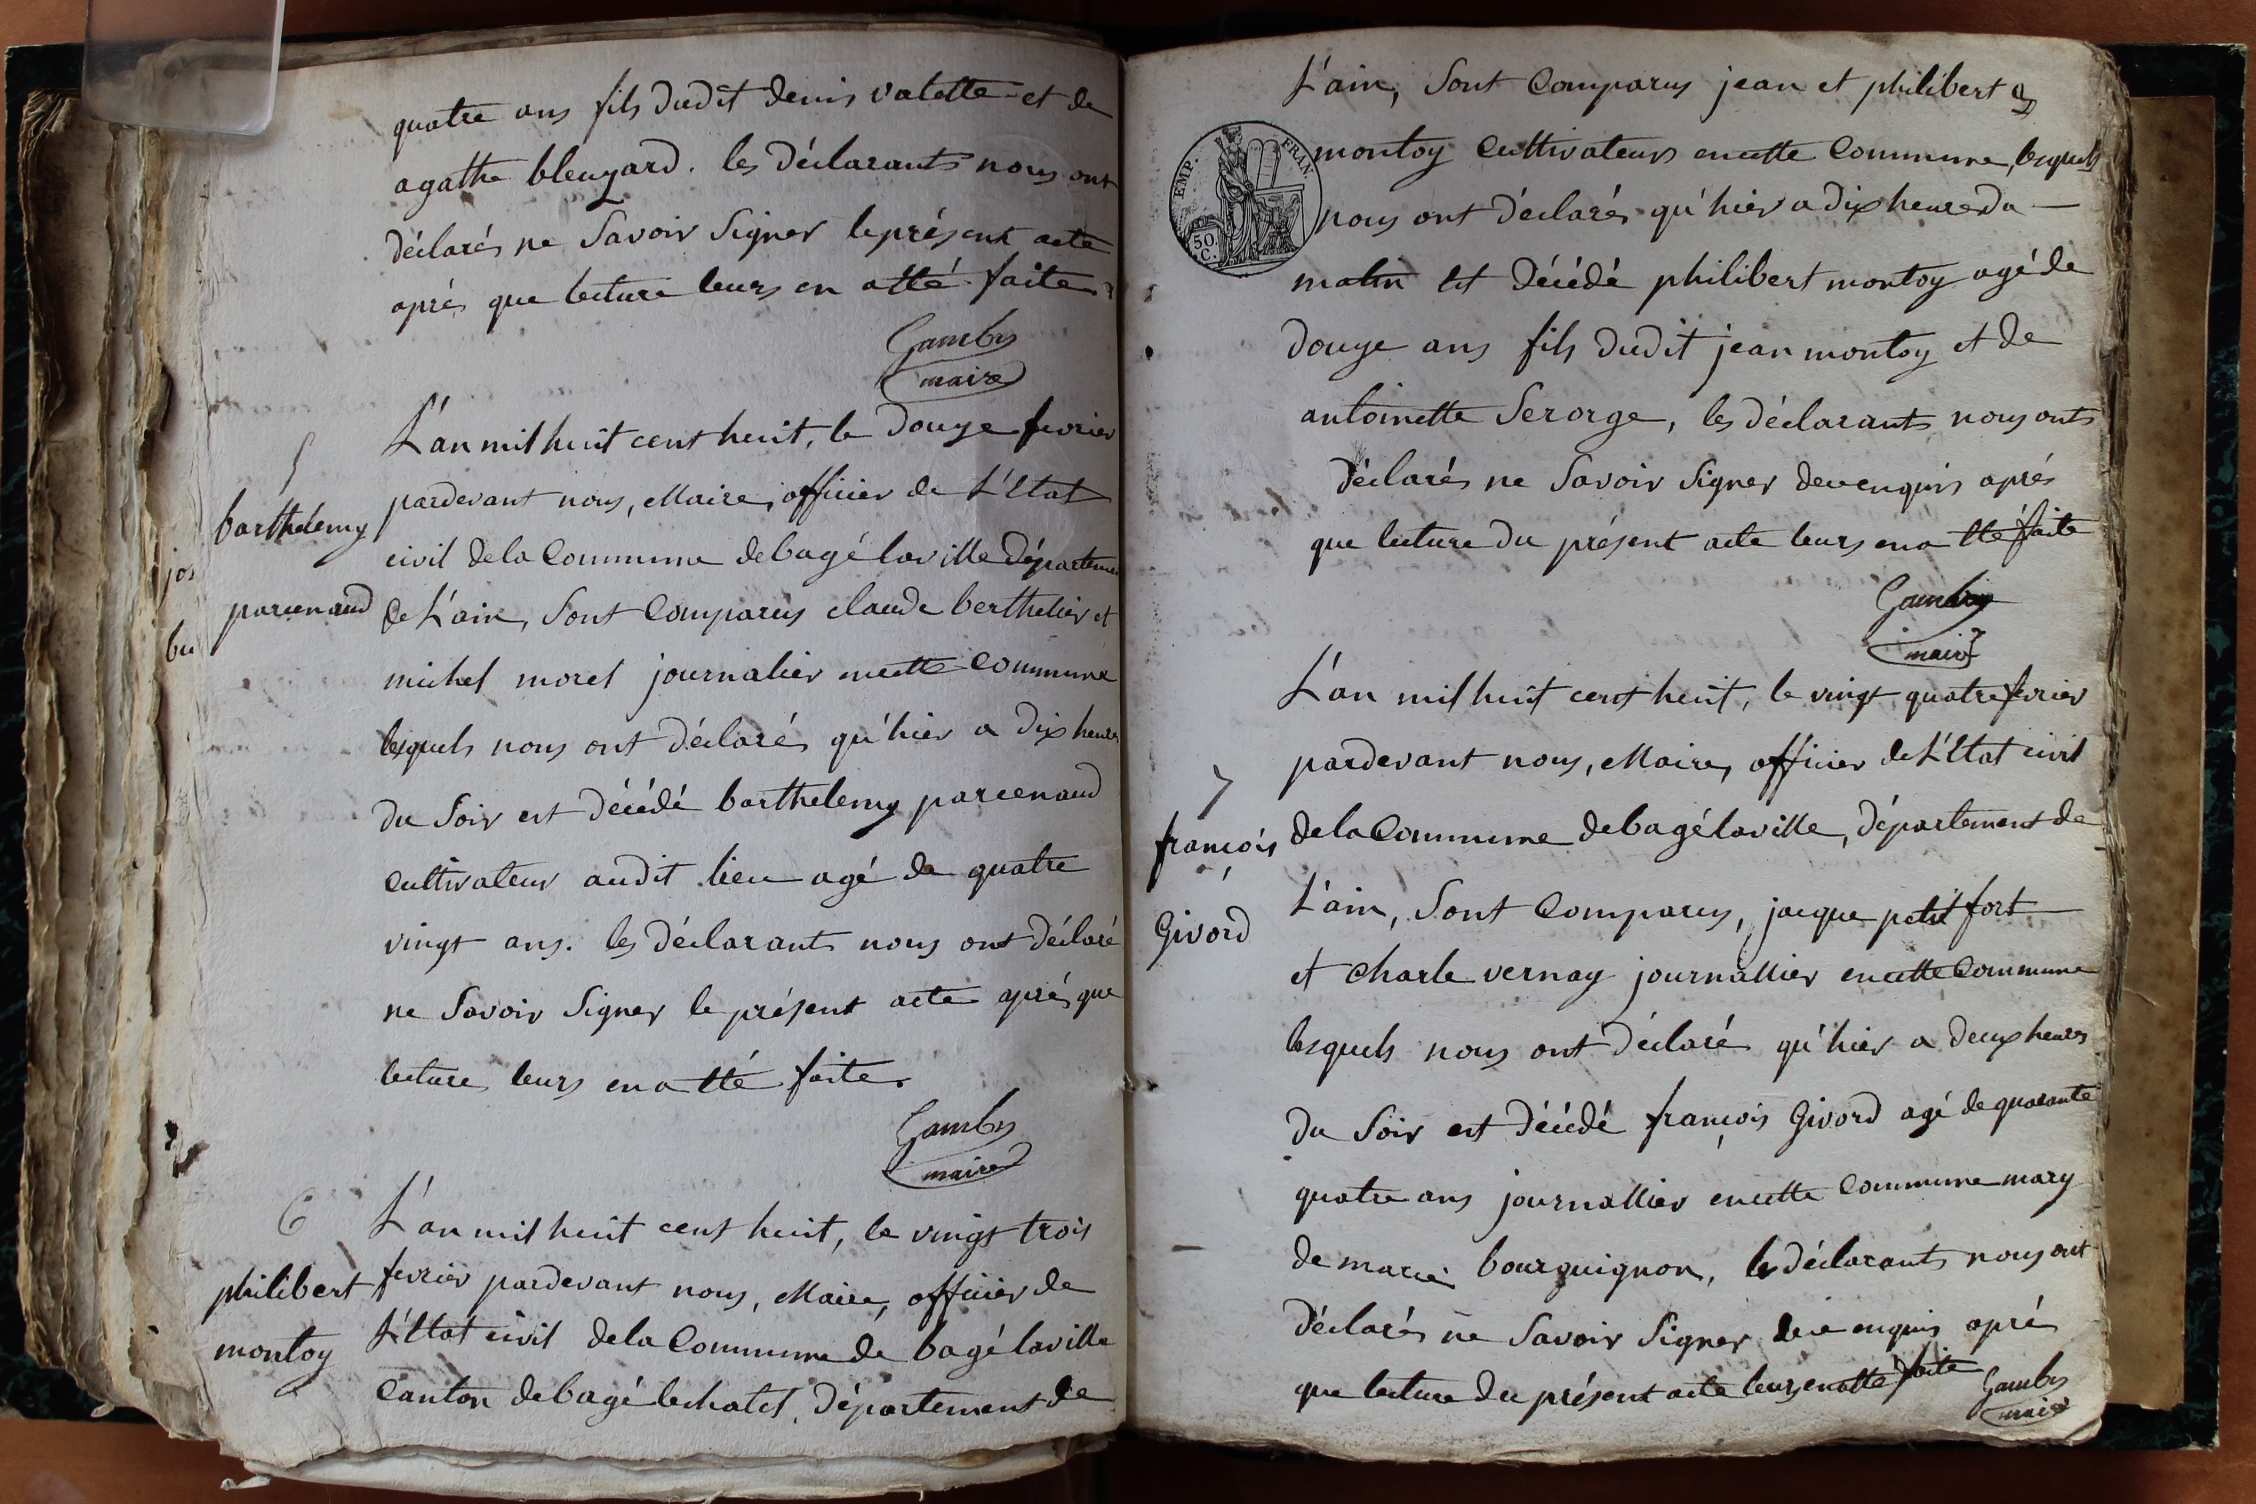 quatre ans fils dudit denis valette et de
agathe bleuzard. les déclarants nous ont
déclarés ne Savoir Signer le présent acte
aprés que lecture leurs en a été faite
Gamby
maire
5
barthelemy
parcenaud
L'an mil huit cent huit, le douze fevrier
pardevant nous, Maire, officier de L'Etat
civil de la Commune de bagé laville Département
de L'ain, Sont Comparus claude berthelier et
michel morel journalier en cette Commune
lesquels nous ont déclarés qu'hier a dix heures
du Soir est décédé barthelemy parcenaud
cultivateur audit lieu agé de quatre
vingt ans. les déclarants nous ont déclaré
ne Savoir Signer le présent acte aprés que
lecture leurs en a été faite.
Gamby
maire
6
philibert
montoy
L'an mil huit cent huit, le vingt trois
fevrier pardevant nous, Maire, officier de
L'Etat civil de la Commune de bagé laville
Canton de bagé lechatel, Département de
jos
bu
L'ain, Sont Comparus jean et philibert
montoy cultivateurs en cette Commune, lesquels
nous ont déclarés qu'hier a dix heure du
matin est décédé philibert montoy agé de
douze ans fils dudit jean montoy et de
antoinette Serorge, les déclarants nous onts
déclarés ne Savoir Signer de ce enquis aprés
que lecture du présent acte leurs en a été faite
Gamby
maire
EMP. FRAN.
50
C.
7
françois
Givord
L'an mil huit cent huit, le vingt quatre fevrier
pardevant nous, Maire, officier de L'Etat civil
de la Commune de bagé laville, Département de
L'ain, Sont Comparus, jacque petit fort
et Charle vernay journallier en cette Commune
lesquels nous ont déclaré qu'hier a deux heures
du Soir est décédé françois Givord agé de quarante
quatre ans journallier en cette Commune mary
de marie bourguignon, les déclarants nous ont
déclarés ne Savoir Signer de ce enquis aprés
que lecture du présent acte leurs en a été faite
Gamby
maire